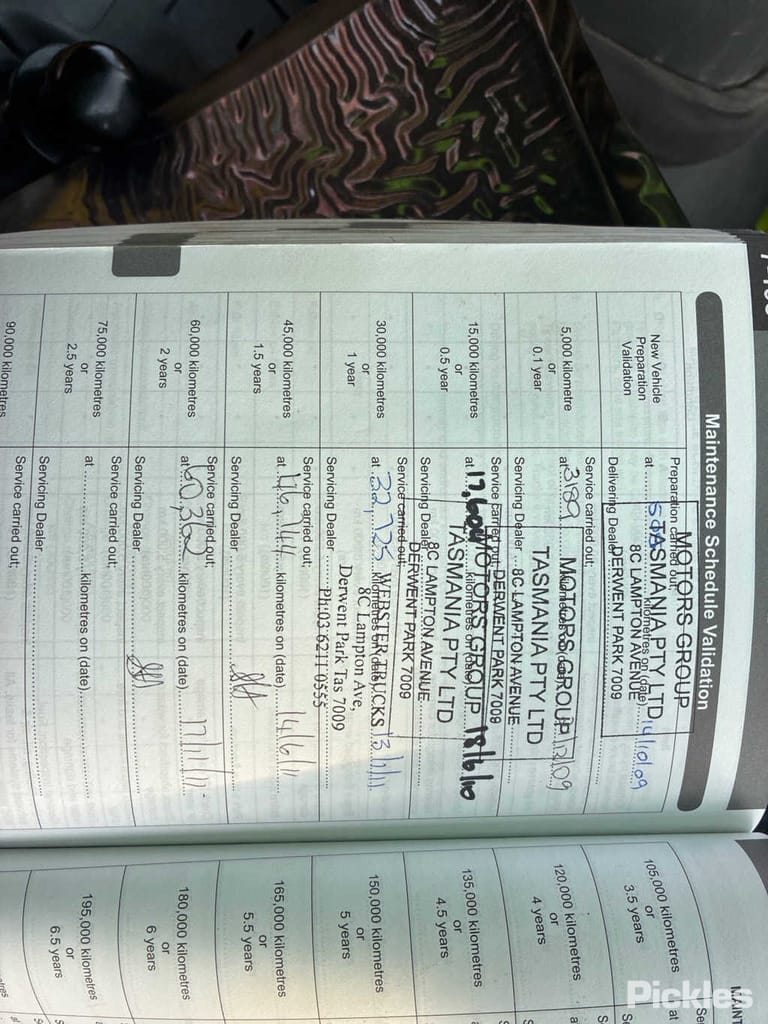 Maintenance Schedule Validation
New Vehicle
Preparation
Validation
Preparation carried out;
at kilometres on (date) 14/10/09
Delivering Dealer
MOTORS GROUP
TASMANIA PTY LTD
8C LAMPTON AVENUE
DERWENT PARK 7009
5,000 kilometre
or
0.1 year
Service carried out;
at 3189
Servicing Dealer
MOTORS GROUP
TASMANIA PTY LTD
8C LAMPTON AVENUE
DERWENT PARK 7009
15,000 kilometres
or
0.5 year
Service carried out;
at 17,604 kilometres on 18/6/10
Servicing Dealer
MOTORS GROUP
TASMANIA PTY LTD
8C LAMPTON AVENUE
DERWENT PARK 7009
30,000 kilometres
or
1 year
Service carried out;
at 32,725 kilometres on (date) 13/1/11
Servicing Dealer
WEBSTER TRUCKS
8C Lampton Ave,
Derwent Park Tas 7009
Ph:03 6211 0555
45,000 kilometres
or
1.5 years
Service carried out;
at 46,744 kilometres on (date) 14/6/11
Servicing Dealer
60,000 kilometres
or
2 years
Service carried out;
at 60,362 kilometres on (date) 17/11/11
Servicing Dealer
75,000 kilometres
or
2.5 years
Service carried out;
at kilometres on (date)
Servicing Dealer
90,000 kilometres
Service carried out;
MAINT
105,000 kilometres
or
3.5 years
at
120,000 kilometres
or
4 years
135,000 kilometres
or
4.5 years
150,000 kilometres
or
5 years
165,000 kilometres
or
5.5 years
180,000 kilometres
or
6 years
195,000 kilometres
or
6.5 years
Pickles